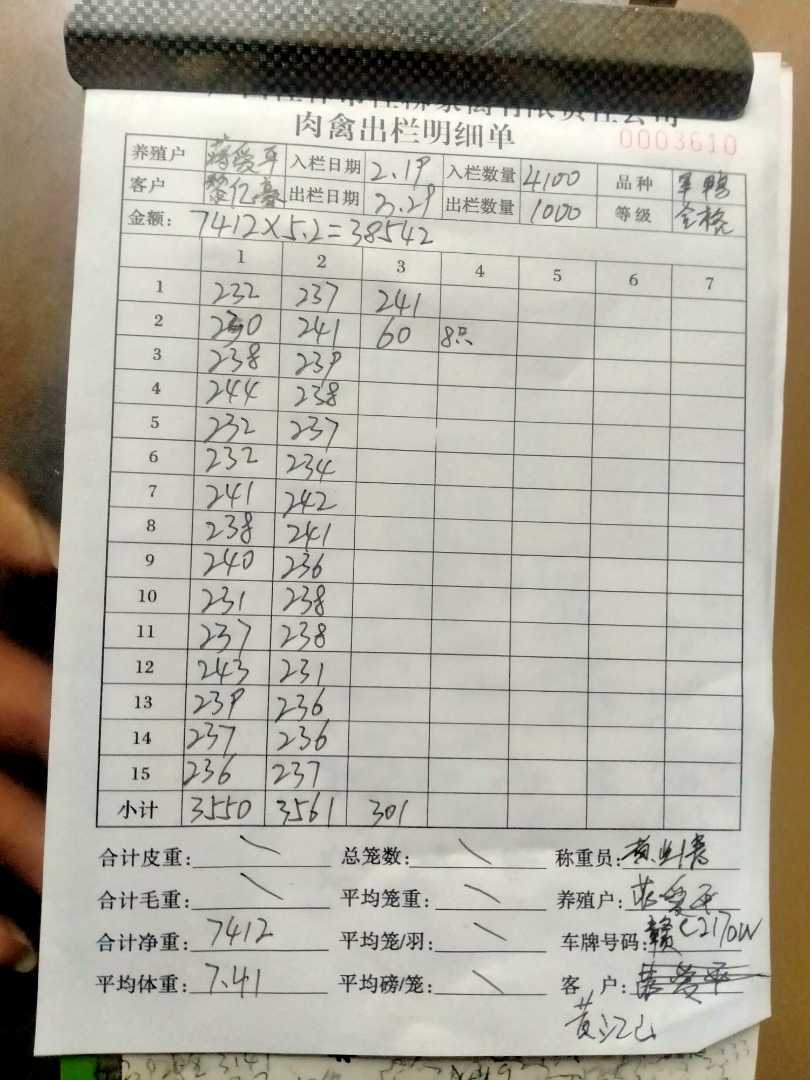 肉禽出栏明细单 0003610
养殖户 蒋爱平 入栏日期 2.19 入栏数量 4100 品种 军鸭
客户 出栏日期 3.29 出栏数量 1000 等级 合格
金额: 7412×5.2=38542
1 2 3 4 5 6 7
1 232 237 241
2 230 241 60 8只
3 238 239
4 244 238
5 232 237
6 232 234
7 241 242
8 238 241
9 240 236
10 231 238
11 237 238
12 243 231
13 239 236
14 237 236
15 236 237
小计 3550 3561 301
合计皮重: 总笼数: 称重员:
合计毛重: 平均笼重: 养殖户: 蒋爱平
合计净重: 7412 平均笼/羽: 车牌号码: 赣C2170W
平均体重: 7.41 平均磅/笼: 客 户:
黄江山